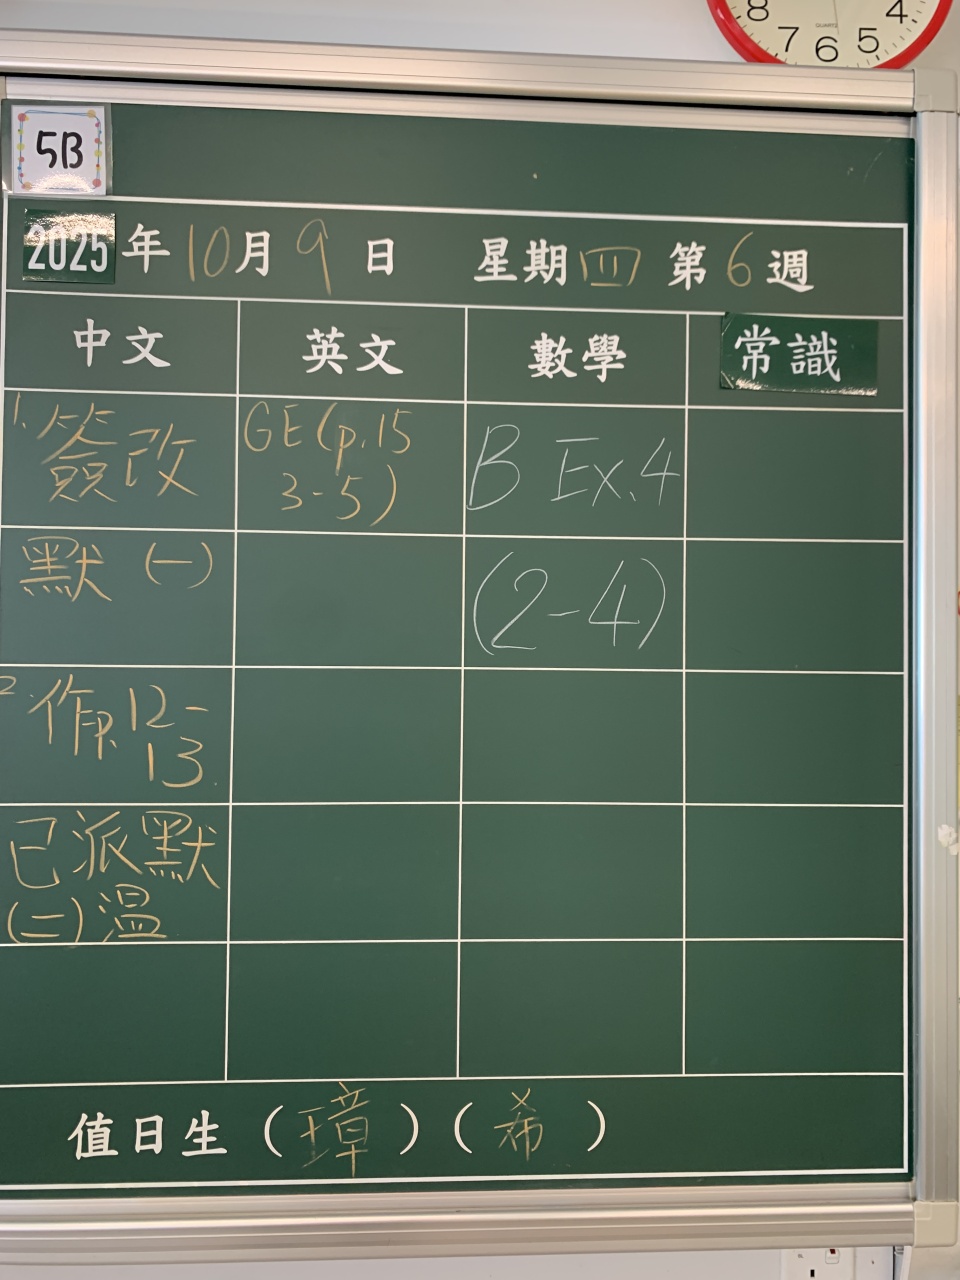 8 7 6 5 4
QUARTZ
5B
2025年10月9日 星期四 第6週
中文 英文 數學 常識
1.簽改 GE(p.15 B Ex.4
3-5)
默(一) (2-4)
2.作p.12-
13
已派默
(二)溫
值日生(璋)(希)